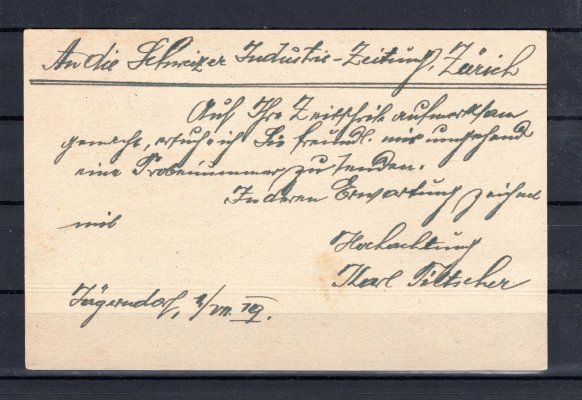 An die Schweizer Industrie-Zeitung, Zürich
Auf Ihre Zeitschrift aufmerksam
gemacht, ersuche ich Sie freundl. mir umgehend
eine Probenummer zu senden.
In deren Erwartung zeichnet
mit
Hochachtung
Karl
Jägerndorf, 2/VII. 19.